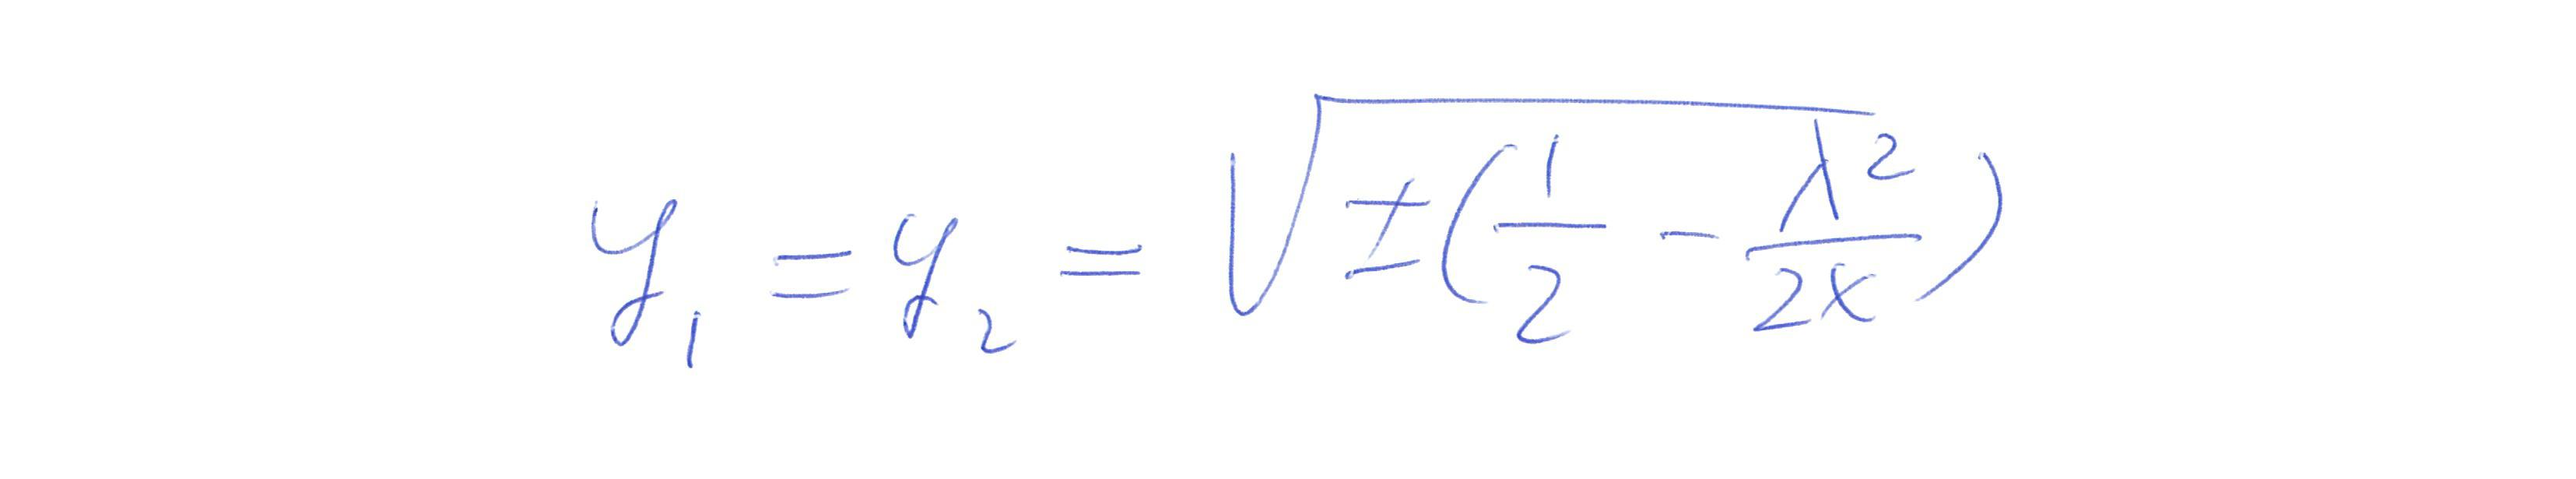 $y_1 = y_2 = \sqrt{\pm(\frac{1}{2} - \frac{\lambda^2}{2x})}$